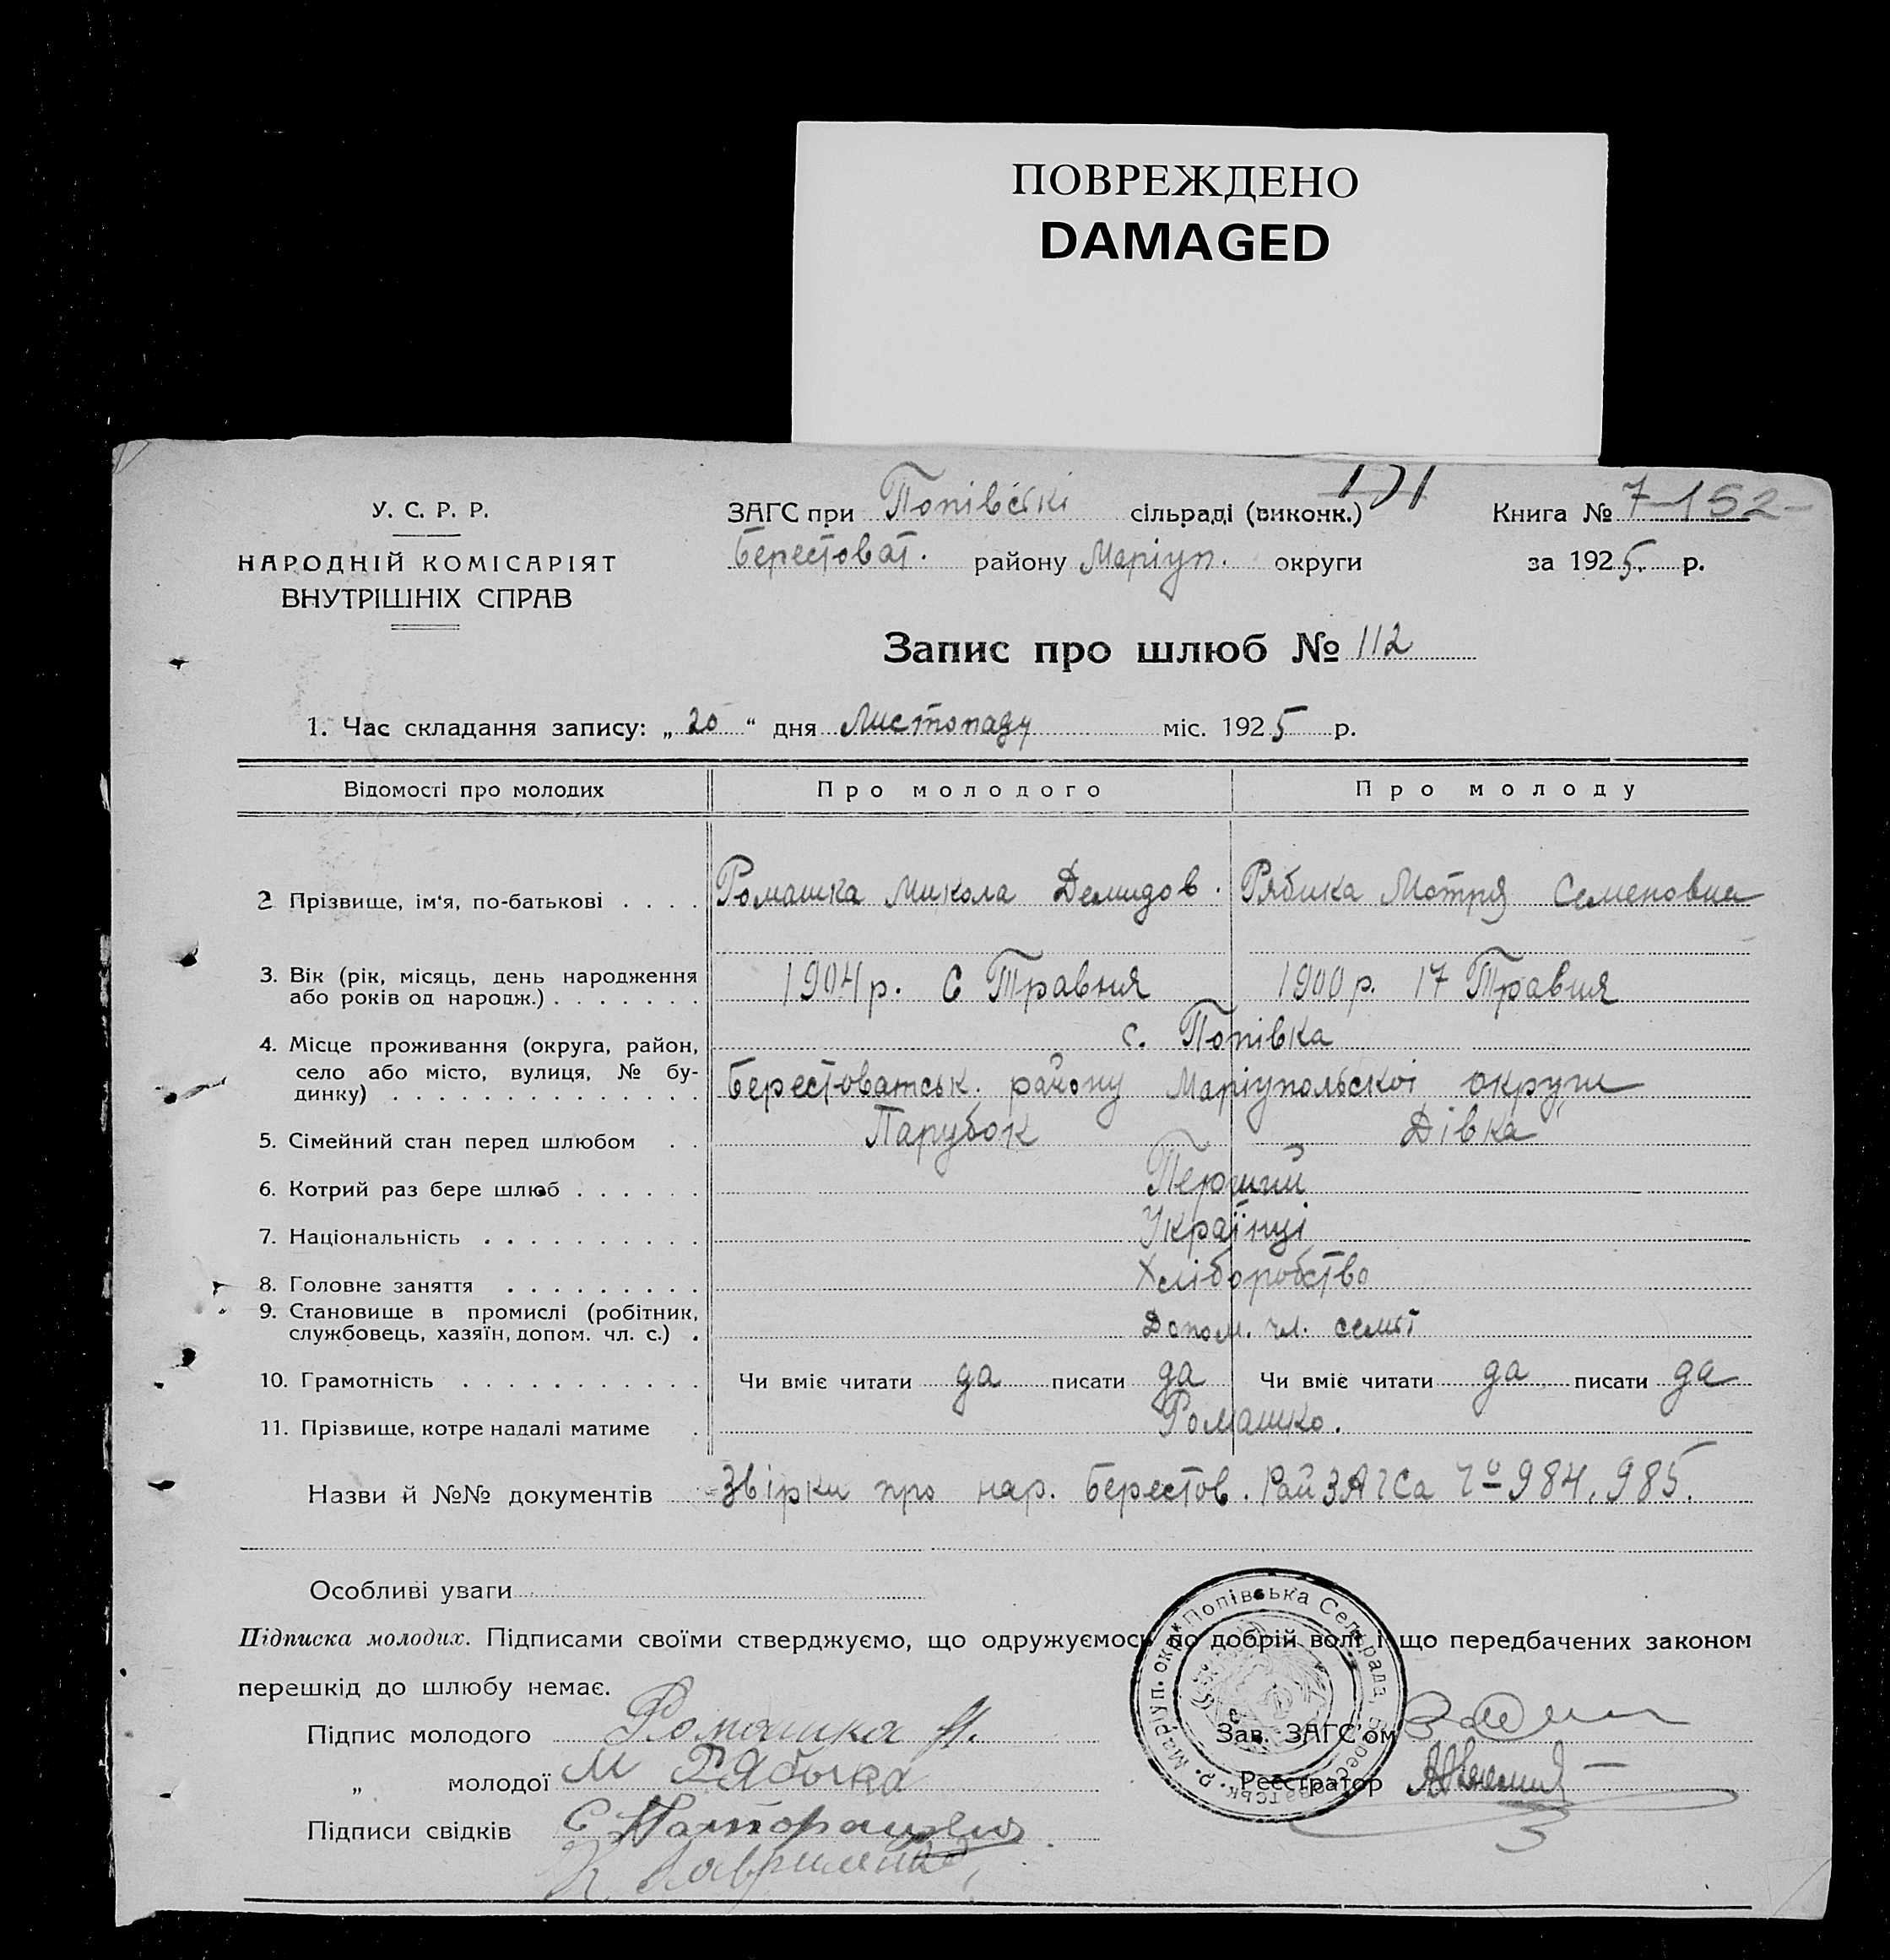 ПОВРЕЖДЕНО
DAMAGED
У. С. Р. Р.
НАРОДНІЙ КОМІСАРІЯТ
ВНУТРІШНІХ СПРАВ
ЗАГС при Попівські сільраді (виконк.)
Берестоват. району Маріуп. округи
Книга № 7-152-
за 1925 р.
Запис про шлюб № 112
1. Час складання запису: „20“ дня Листопаду міс. 1925 р.
Відомості про молодих Про молодого Про молоду
2 Прізвище, ім‘я, по-батькові . . . . Ромашка Микола Демидов. Рябика Мотря Семеновна
3. Вік (рік, місяць, день народження
або років од народж.) . . . . . . . 1904 р. 6 Травня 1900 р. 17 Травня
с. Попівка
4. Місце проживання (округа, район,
село або місто, вулиця, № бу-
динку) . . . . . . . . . . . . . . Берестоватськ. району Маріупольскоі округи
5. Сімейний стан перед шлюбом . . Парубок Дівка
6. Котрий раз бере шлюб . . . . . . Перший
7. Національність . . . . . . . . . . Українці
8. Головне заняття . . . . . . . . . Хліборобство
9. Становище в промислі (робітник,
службовець, хазяїн, допом. чл. с.) . Допом. чл. семьї
10. Грамотність . . . . . . . . . . . Чи вміє читати да писати да Чи вміє читати да писати да
11. Прізвище, котре надалі матиме . Ромашко.
Назви й №№ документів Звірки про нар. Берестов. РайЗАГСа Чо 984, 985.
Особливі уваги
Підписка молодих. Підписами своїми стверджуємо, що одружуємось по добрій волі і що передбачених законом
перешкід до шлюбу немає.
Попівська Сельрада, Берестоватськ. р. Маріуп. окр.
Підпис молодого Ромашка Н.
„ молодої М Рябыка
Підписи свідків С
К Гавриленко
Зав. ЗАГС’ом
Реєстратор